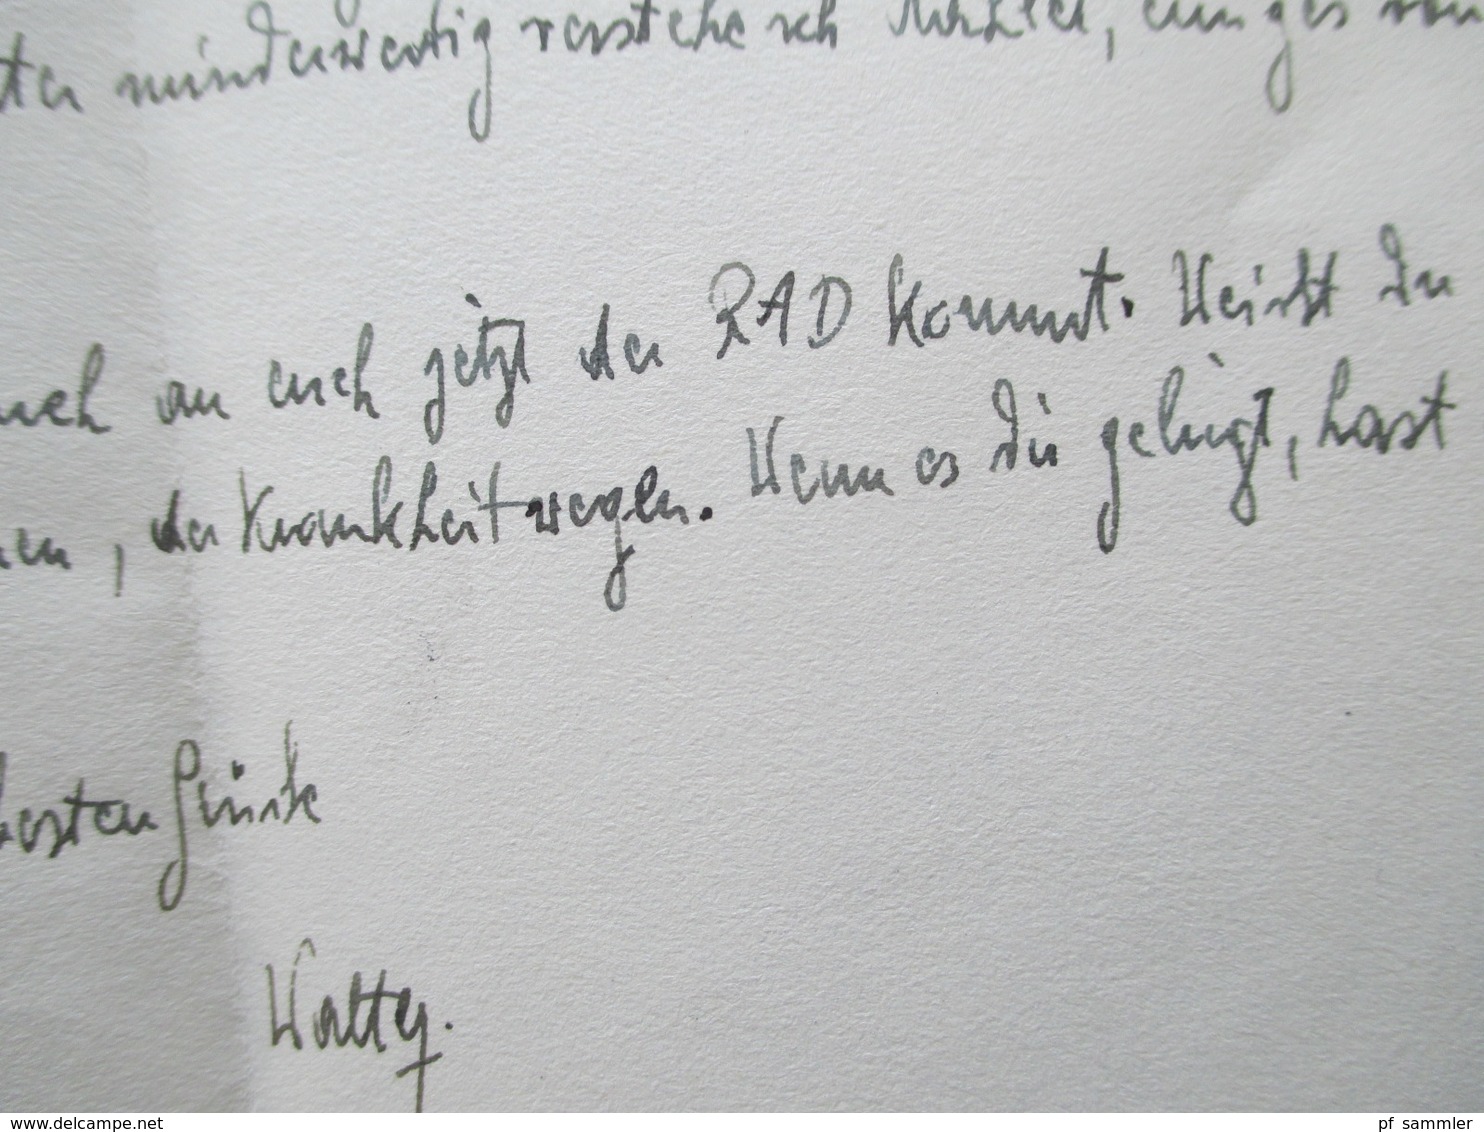 minderwertig verstehe ich
auch an euch jetzt der RAD kommt. Weißt Du
, der Krankheit wegen. Wenn es Dir gelingt, hast
besten Grüße
Watty.
www.delcampe.net
pf_sammler